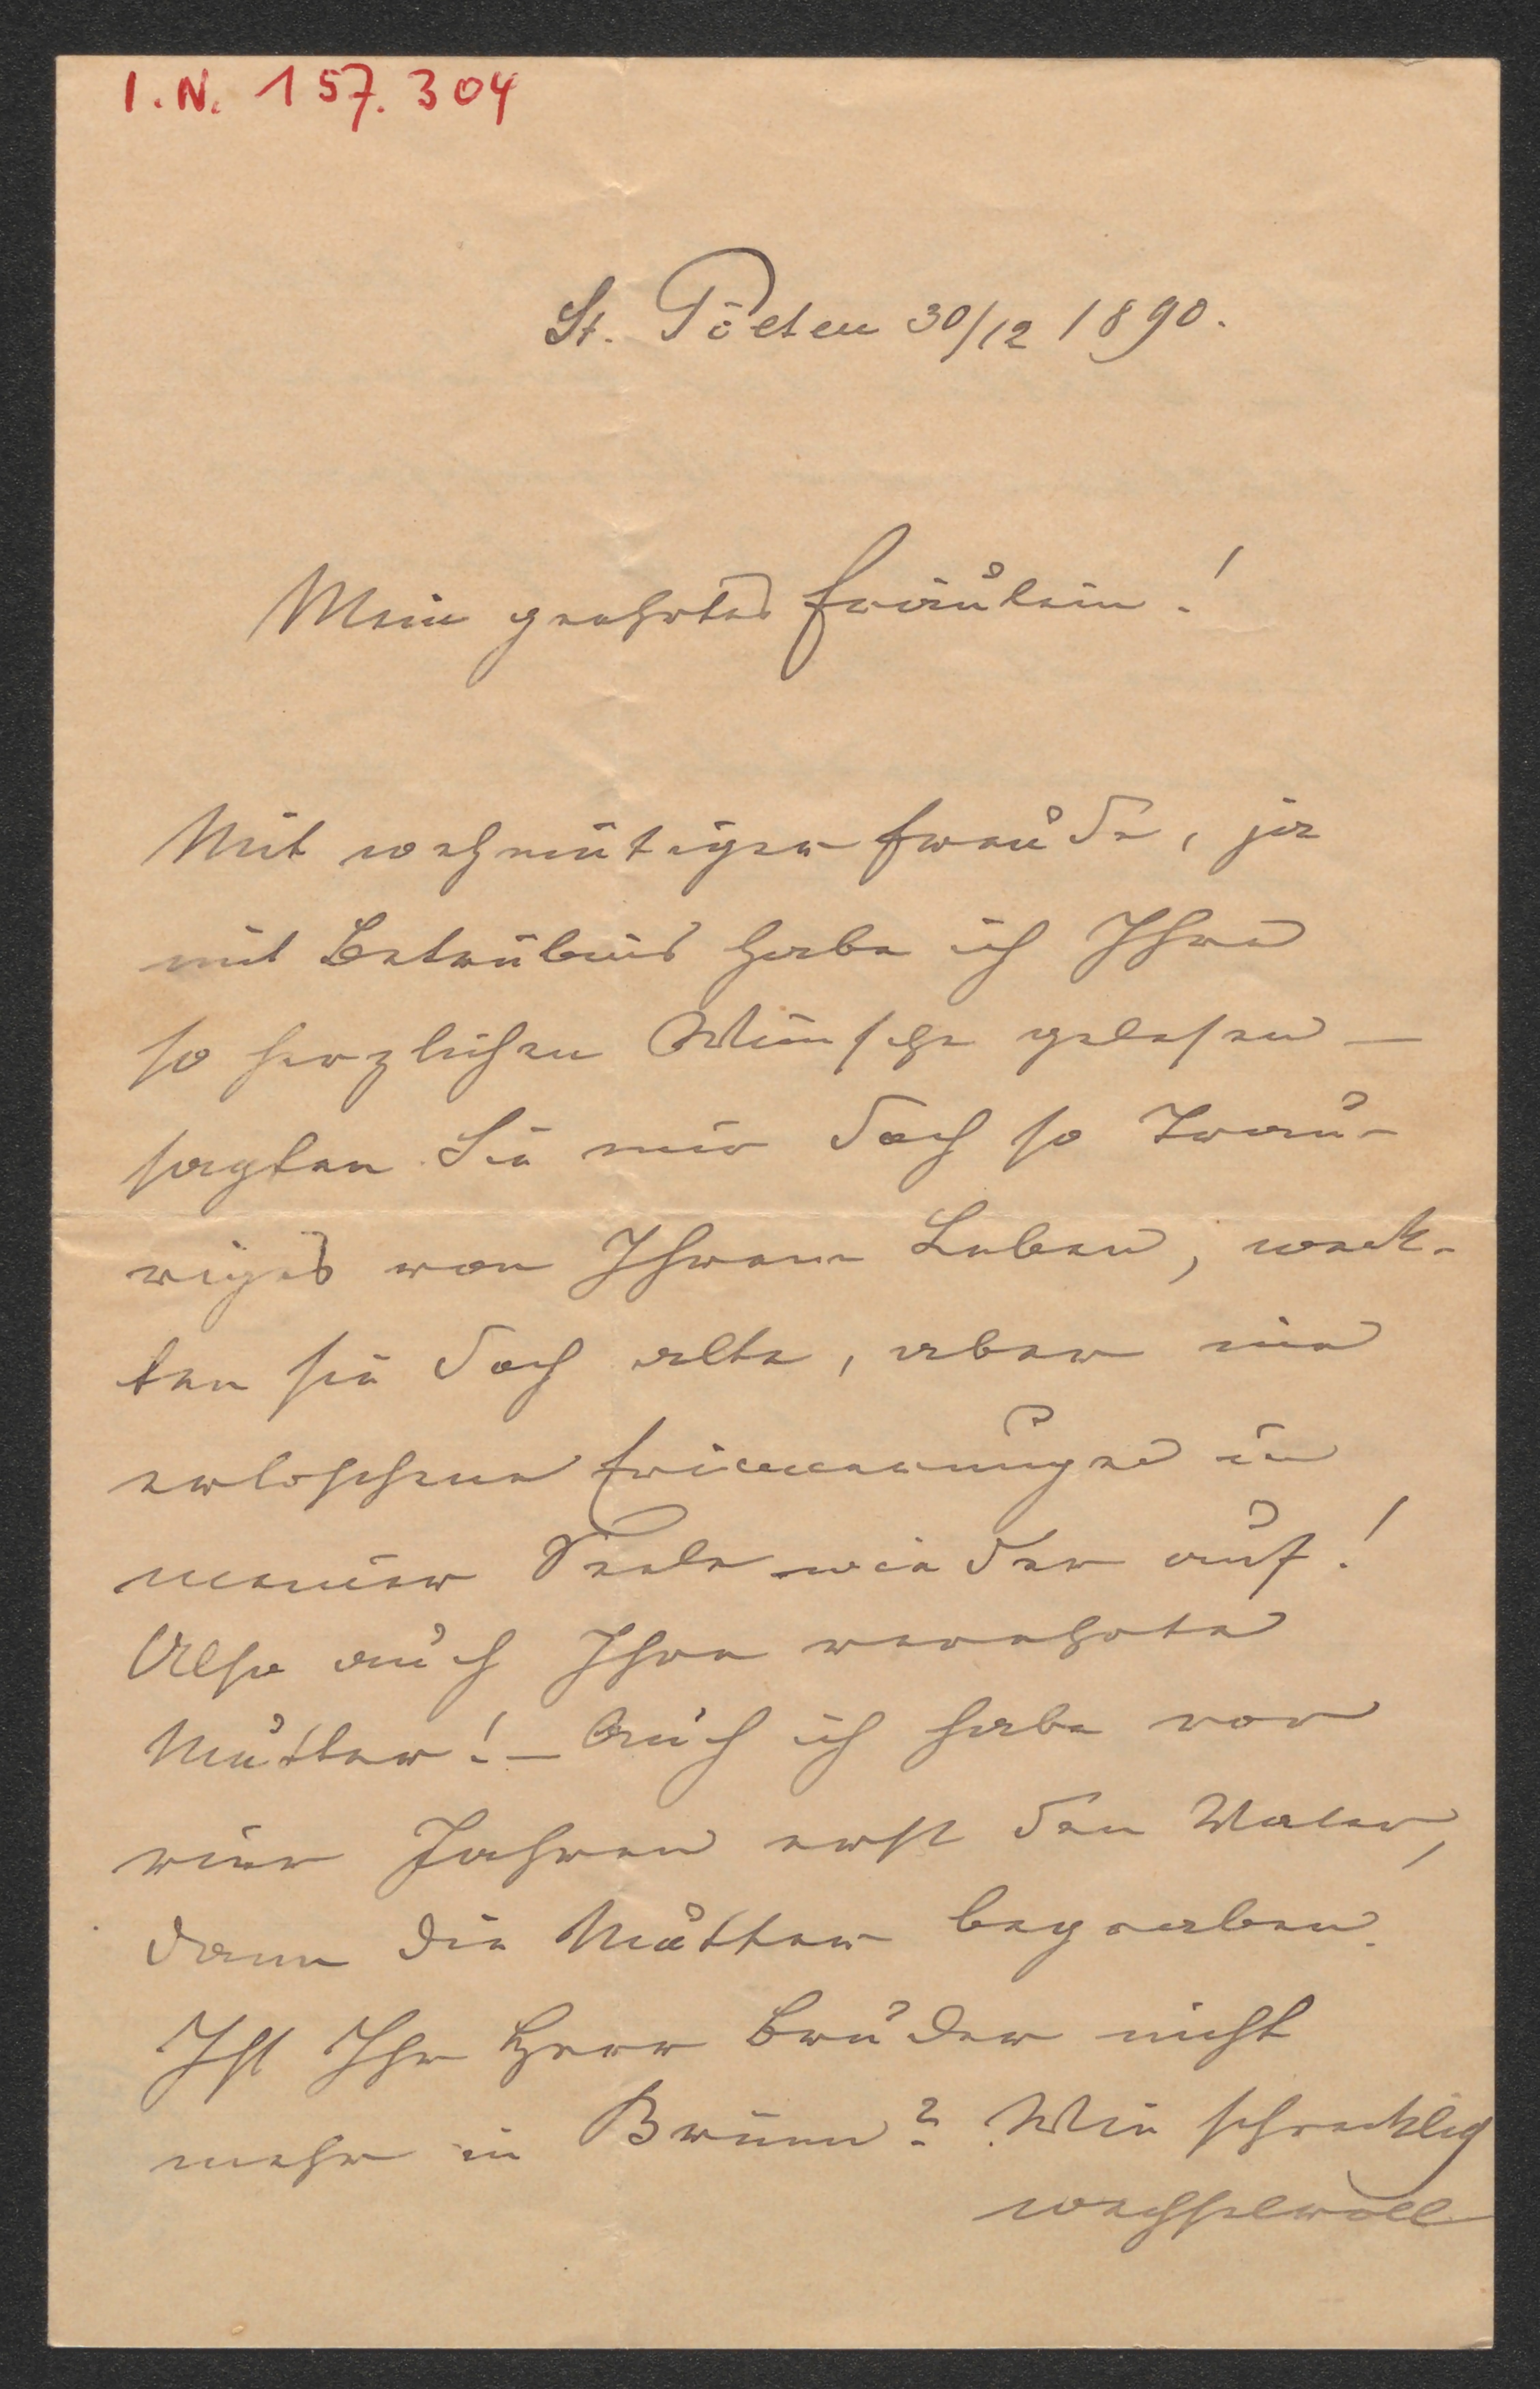 I.N. 157.304
St. Pölten 30/12 1890.
Mein geehrtes Fräulein!
Mit wehmütiger Freude, ja
mit Betrübnis habe ich Ihre
so herzlichen Wünsche gelesen —
sagten Sie mir doch so Trau-
riges von Ihrem Leben, weck-
ten sie doch alte, aber nie
erloschene Erinnerungen in
meiner Seele wieder auf!
Also auch Ihre verehrte
Mutter! — Auch ich habe vor
vier Jahren erst den Vater,
dann die Mutter begraben.
Ist Ihr Herr Bruder nicht
mehr in Brünn? Wie schrecklich
wechselvoll